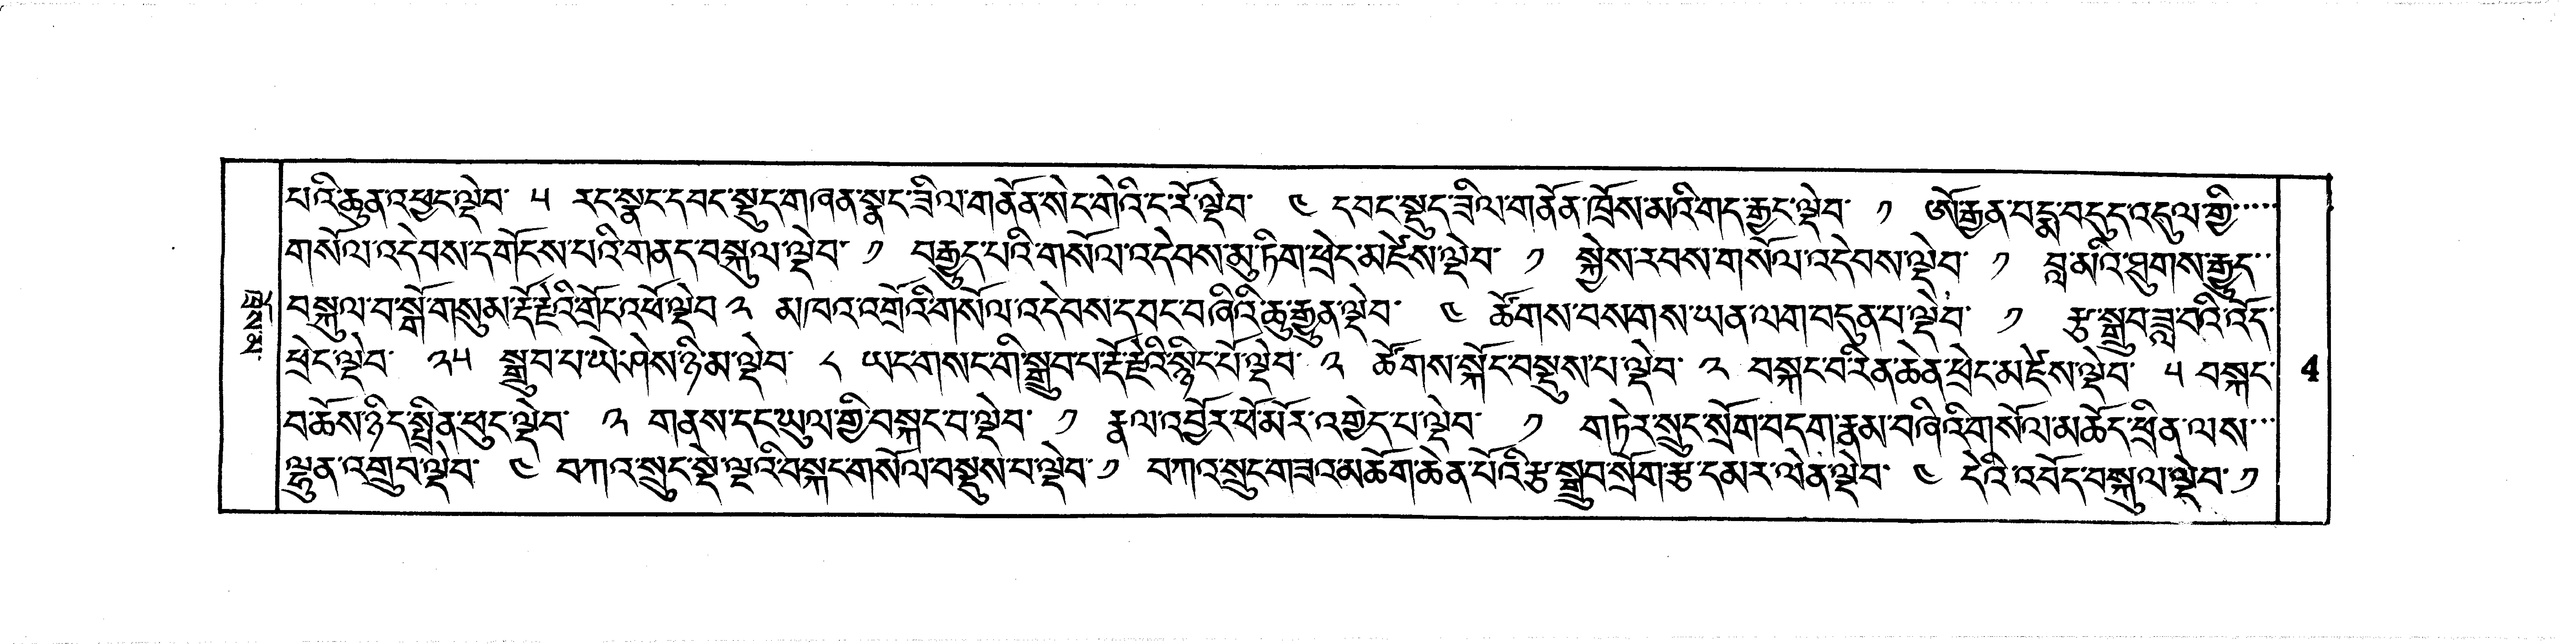 པའི་ཆུན་འཕྱང་ལྡེབ་ ༥ རང་སྣང་དབང་སྡུད་གཞན་སྣང་ཟིལ་གནོན་སེང་གེའི་ང་རོ་ལྡེབ་ ༤ དབང་སྡུད་ཟིལ་གནོན་ཁྲོས་མའི་གད་རྒྱང་ལྡེབ་ ༡ ཨོ་རྒྱན་པདྨ་བདུད་འདུལ་གྱི་.....
གསོལ་འདེབས་དགོངས་པའི་གནད་བསྐུལ་ལྡེབ་ ༡ བརྒྱུད་པའི་གསོལ་འདེབས་མུ་ཏིག་ཕྲེང་མཛེས་ལྡེབ་ ༡ སྐྱེས་རབས་གསོལ་འདེབས་ལྡེབ་ ༡ བླ་མའི་ཐུགས་རྒྱུད་..
བསྐུལ་བ་སྒོ་གསུམ་རྡོ་རྗེའི་གྲོང་འཕོ་ལྡེབ ༢ མ་ཁའ་འགྲོའི་གསོལ་འདེབས་དབང་བཞིའི་ཆུ་རྒྱུན་ལྡེབ་ ༤ ཚོགས་བསགས་ཡན་ལག་བདུན་པ་ལྡེབ་ ༡ རྩ་སྒྲུབ་ཟླ་བའི་འོད་
ཕྲེང་ལྡེབ་ ༢༥ སྒྲུབ་པ་ཡེ་ཤེས་ཉི་མ་ལྡེབ་ ༨ ཡང་གསང་གི་སྒྲུབ་པ་རྡོ་རྗེའི་སྙིང་པོ་ལྡེབ་ ༢ ཚོགས་སྐོང་བསྡུས་པ་ལྡེབ་ ༢ བསྐང་བ་རིན་ཆེན་ཕྲེང་མཛེས་ལྡེབ་ ༥ བསྐང་ 4
བ་ཆོས་ཉིད་སྤྲིན་ཕུང་ལྡེབ་ ༣ གནས་དང་ཡུལ་གྱི་བསྐང་བ་ལྡེབ་ ༡ རྣལ་འབྱོར་ཕོ་མོར་འགྱེད་པ་ལྡེབ་ ༡ གཏེར་སྲུང་སྲོག་བདག་རྣམ་བཞིའི་གསོལ་མཆོད་ཕྲིན་ལས་...
ལྷུན་འགྲུབ་ལྡེབ་ ༤ བཀའ་སྲུང་སྡེ་ལྔའི་བསྐང་གསོལ་བསྡུས་པ་ལྡེབ་ ༡ བཀའ་སྲུང་གཟའ་མཆོག་ཆེན་པོའི་རྩ་སྒྲུབ་སྲོག་རྩ་དམར་ལེན་ལྡེབ་ ༤ དེའི་འབོད་བསྐུལ་ལྡེབ་ ༡